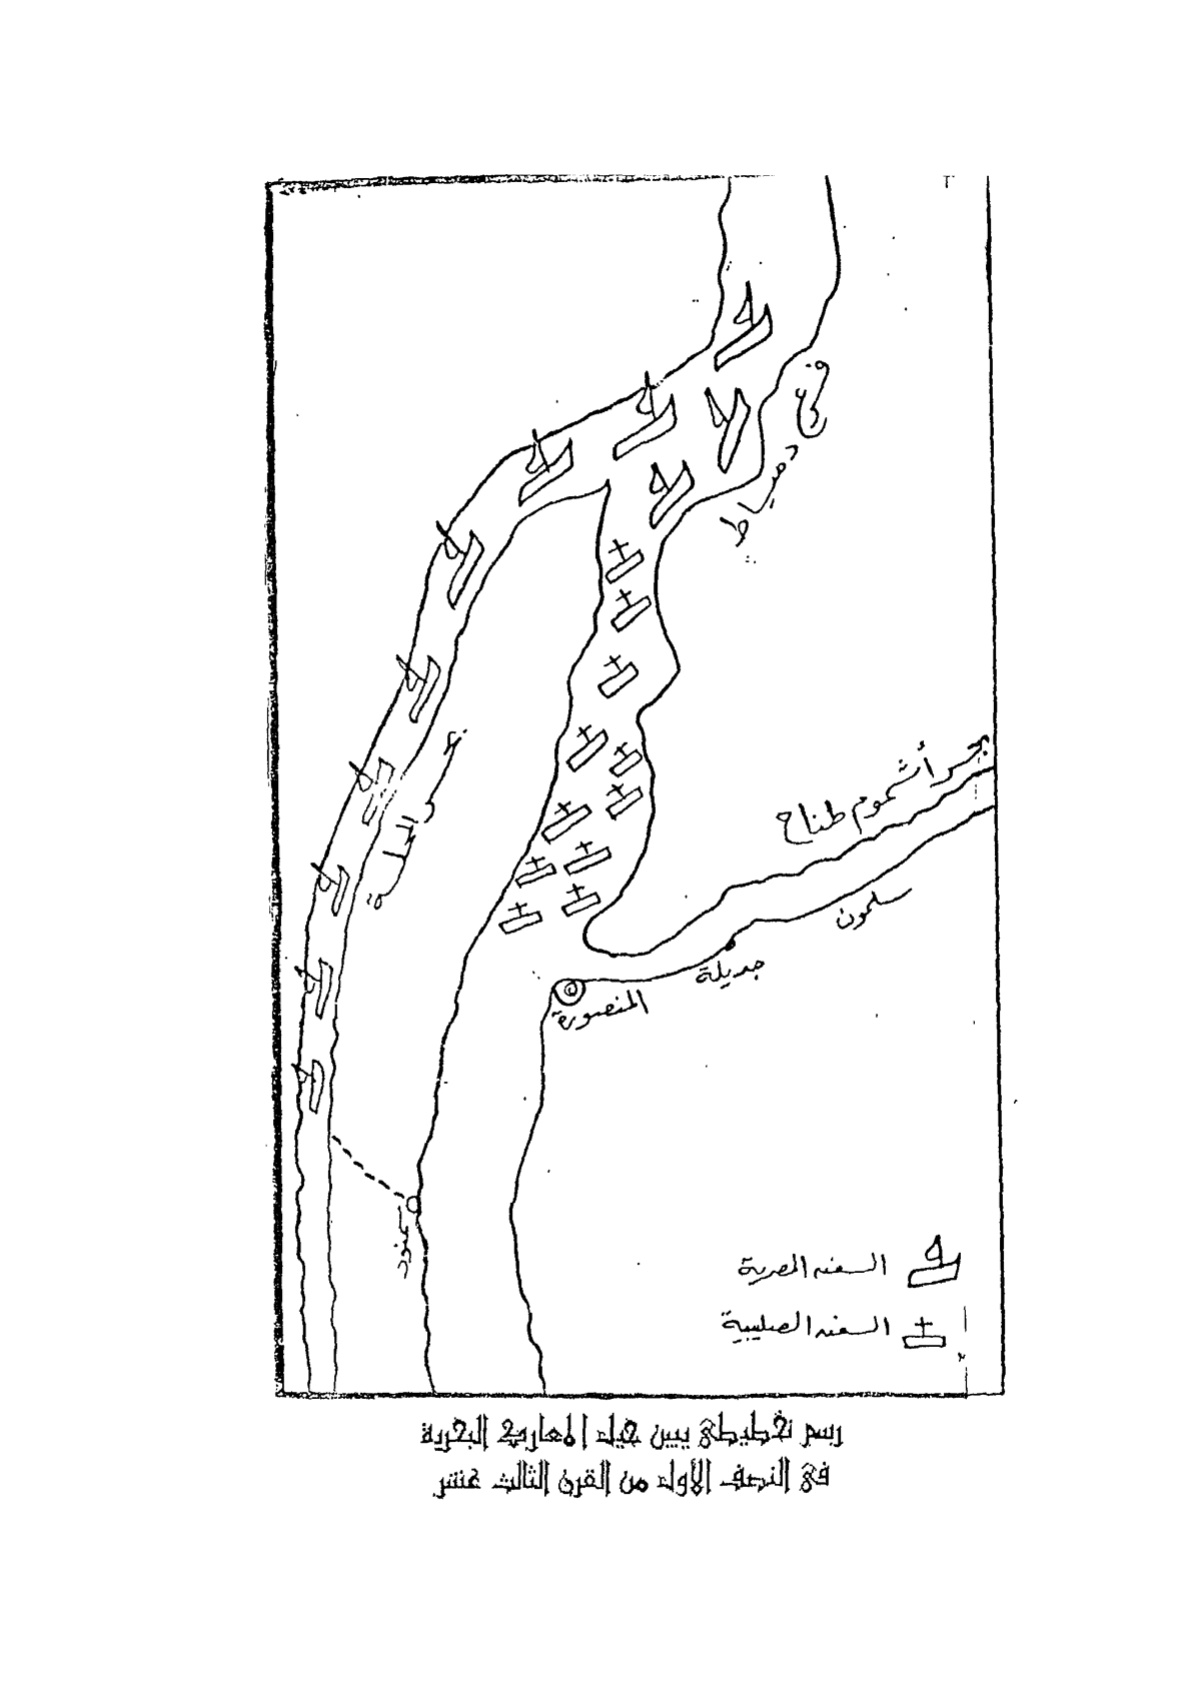 فرع دمياط
بحر المحلة
بحر أشموم طناح
سلمون
جديلة
المنصورة
سمنود
السفن المصرية
السفن الصليبية
رسم تخطيطى يبين حيل المعارك البحرية
فى النصف الأول من القرن الثالث عشر